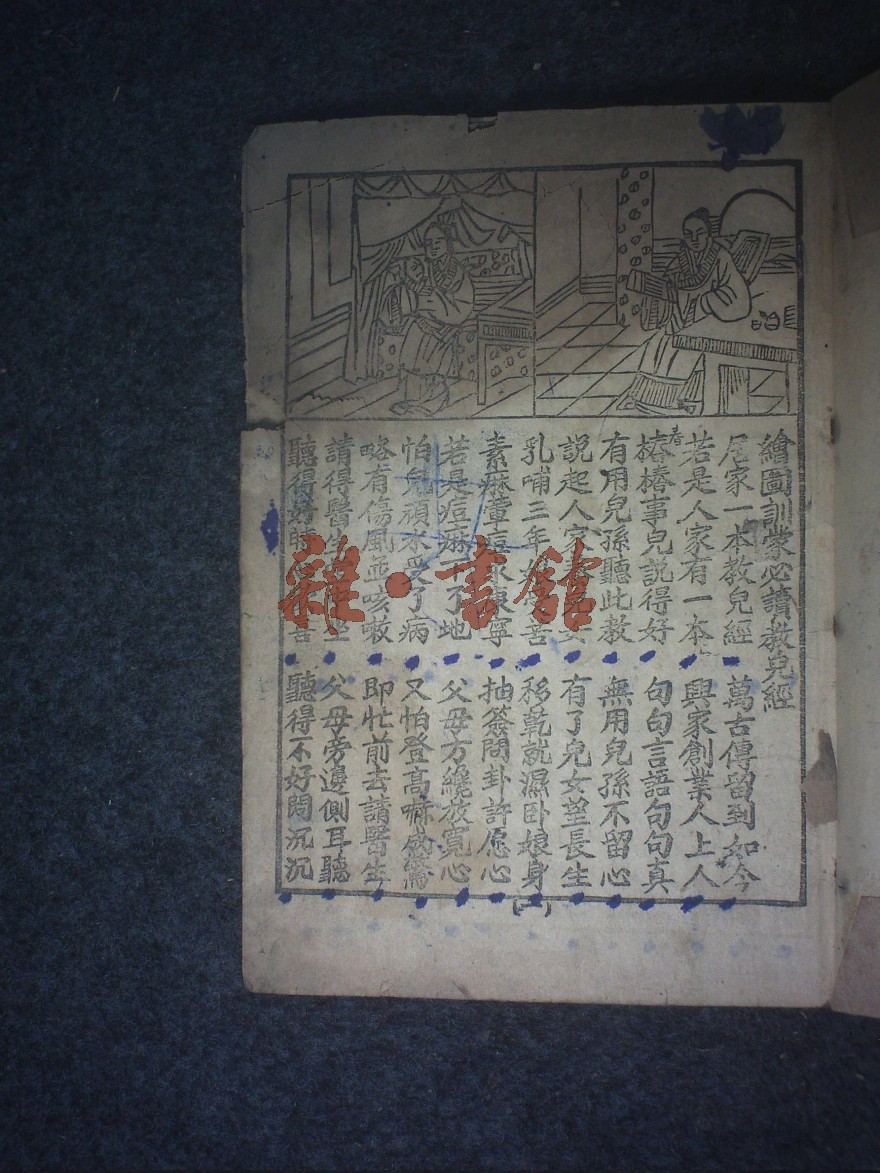 繪圖訓蒙必讀教兒經
尼家一本教兒經 萬古傳留到如今
若是人家有一本 興家創業人上人
椿椿事兒説得好 句句言語句句真
有用兒孫聽此教 無用兒孫不留心
説起人家 有了兒女望長生
乳哺三年 苦 移乾就濕卧娘身
素痳 寧 抽簽問卦許愿心
若是痘痳 了地 父母方纔放寬心
怕兒頑水受了病 又怕登高嚇成驚
略有傷風並咳嗽 即忙前去請醫生
請得醫生 坐 父母旁邊側耳聽
聽得好時 喜 聽得不好悶沉沉
(一)
雜·書館